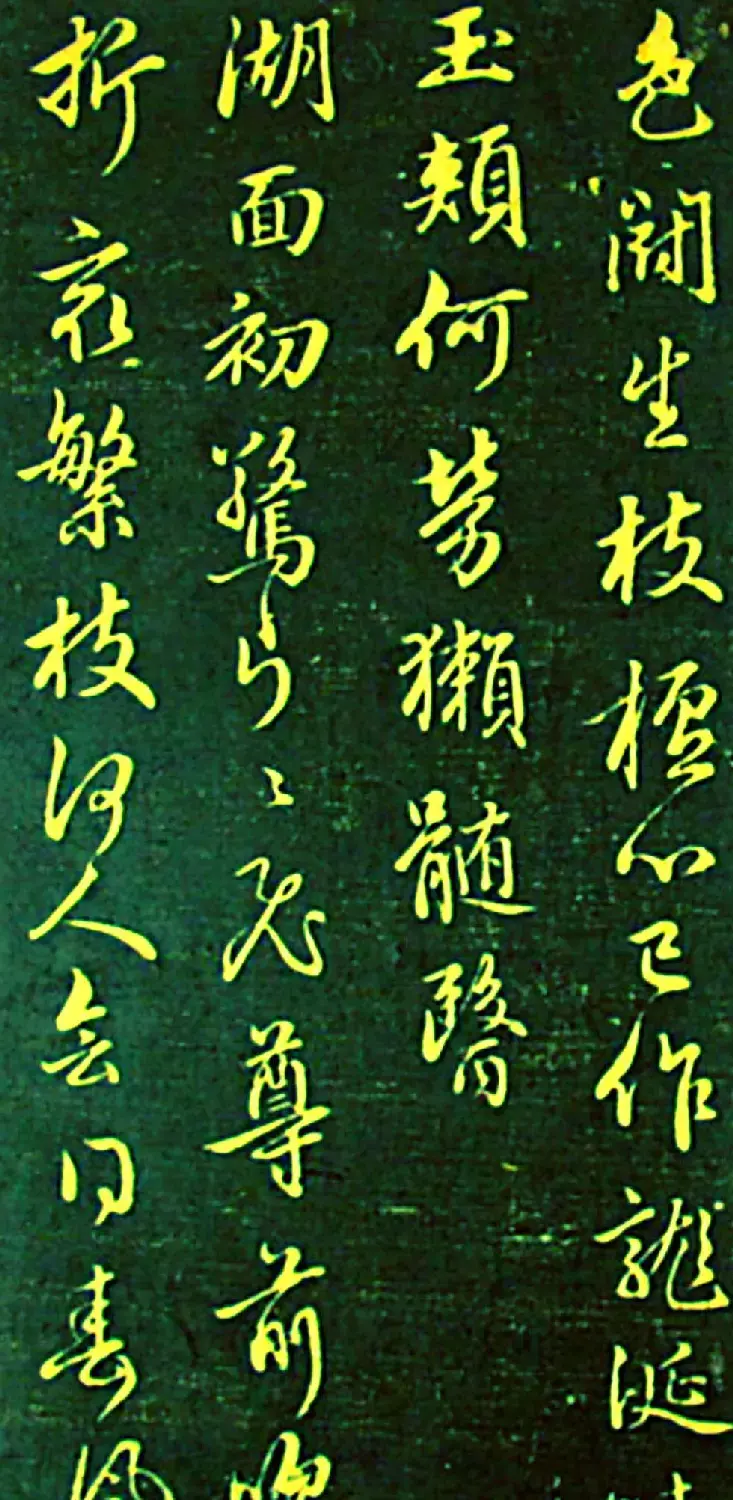 色鬭生枝檀心已作龍涎
玉頰何勞獺髓醫
湖面初驚片〻飛尊前吹
折最繁枝何人會得春風